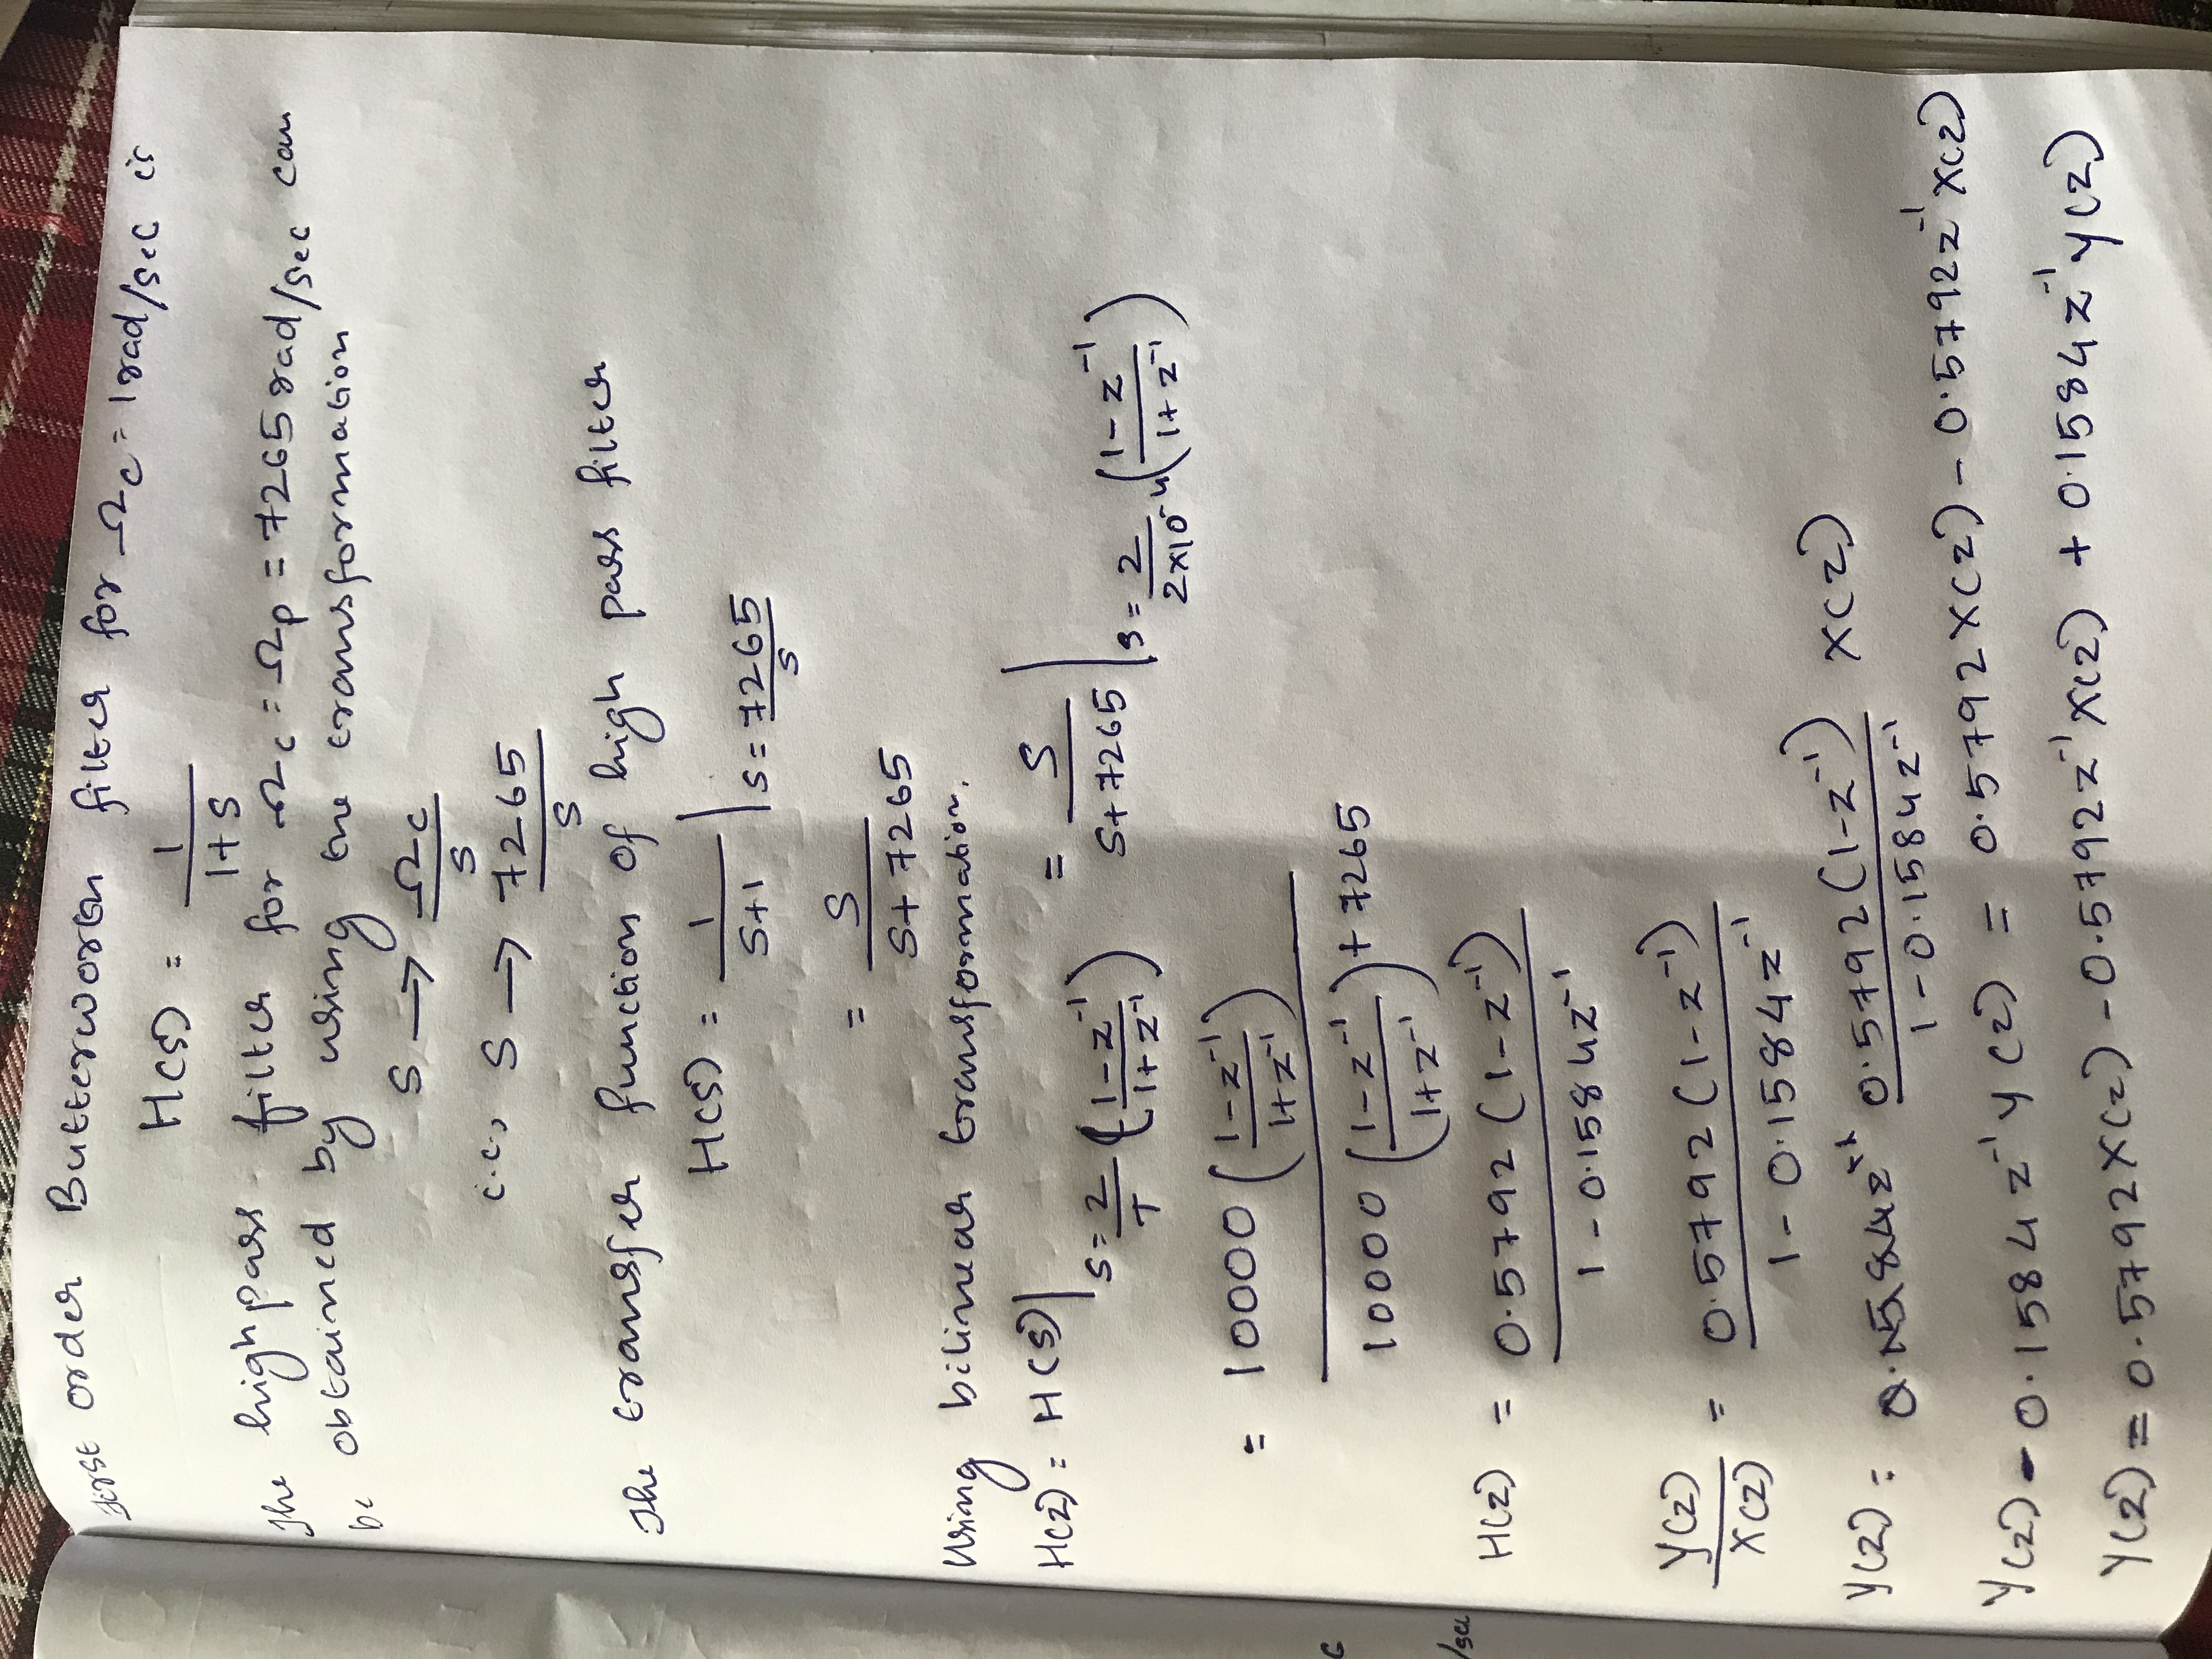 First order Butterworth filter for Ωc = 1rad/sec is
H(s) = 1/(1+s)
The highpass filter for Ωc = Ωp = 7265 rad/sec can
be obtained by using the transformation
S → Ωc/s
i.e., S → 7265/s
The transfer function of high pass filter
H(s) = 1/(s+1) | s = 7265/s
= s/(s+7265)
Using bilinear transformation,
H(z) = H(s)| s = 2/T ((1-z⁻¹)/(1+z⁻¹)) = s/(s+7265) | s = 2/(2×10⁻⁴) ((1-z⁻¹)/(1+z⁻¹))
= 10000 ((1-z⁻¹)/(1+z⁻¹)) / (10000 ((1-z⁻¹)/(1+z⁻¹)) + 7265)
H(z) = 0.5792 (1-z⁻¹) / (1 - 0.1584z⁻¹)
Y(z)/X(z) = 0.5792 (1-z⁻¹) / (1 - 0.1584z⁻¹)
Y(z) = 0.5792 (1-z⁻¹) / (1 - 0.1584z⁻¹) X(z)
Y(z) - 0.1584 z⁻¹ Y(z) = 0.5792 X(z) - 0.5792 z⁻¹ X(z)
Y(z) = 0.5792 X(z) - 0.5792 z⁻¹ X(z) + 0.1584 z⁻¹ Y(z)
/sec